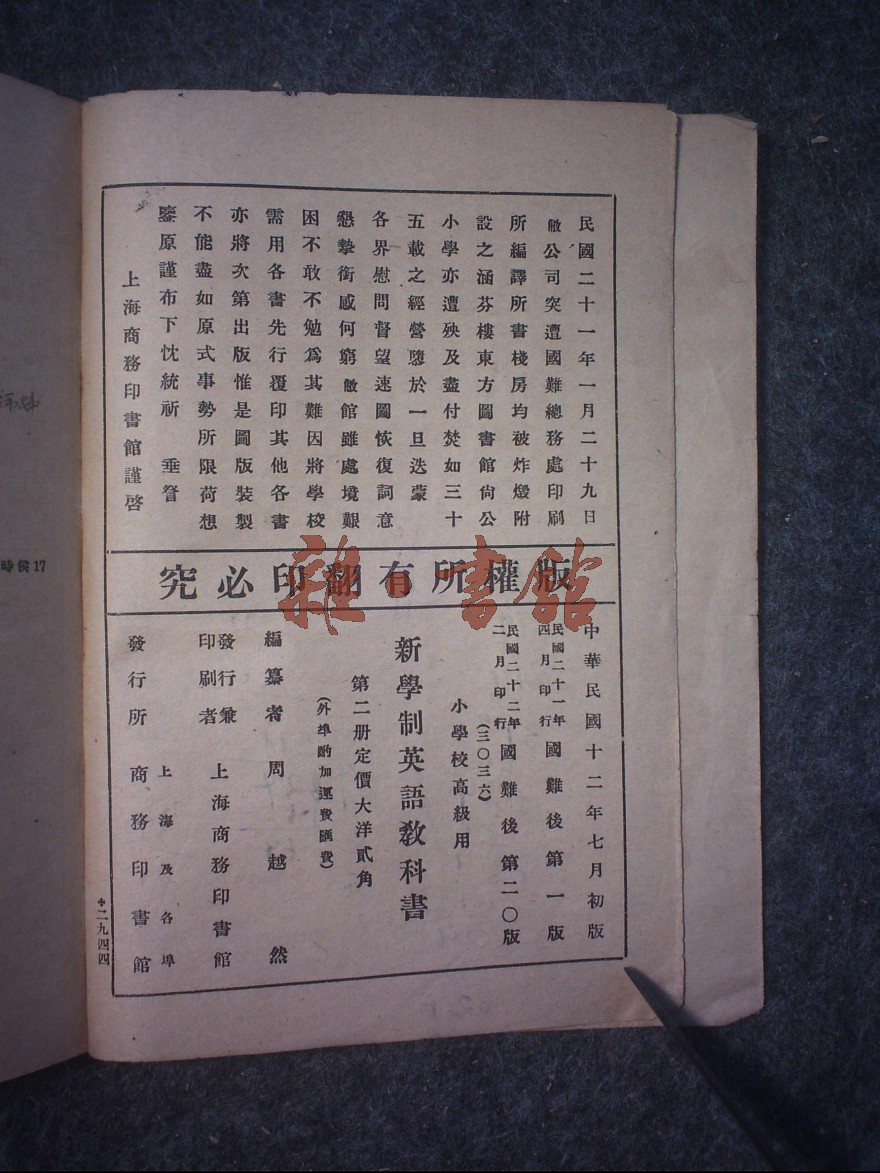 民國二十一年一月二十九日
敝公司突遭國難總務處印刷
所編譯所書棧房均被炸燬附
設之涵芬樓東方圖書館尙公
小學亦遭殃及盡付焚如三十
五載之經營隳於一旦迭蒙
各界慰問督望速圖恢復詞意
懇摯銜感何窮敝館雖處境艱
困不敢不勉爲其難因將學校
需用各書先行覆印其他各書
亦將次第出版惟是圖版裝製
不能盡如原式事勢所限荷想
鑒原謹布下忱統祈 垂詧
上海商務印書館謹啓
究必印翻有所權版
中華民國十二年七月初版
民國二十一年四月印行 國難後第一版
民國二十二年二月印行 國難後第二〇版
(三〇三六)
小學校高級用
新學制英語敎科書
第二册定價大洋貳角
(外埠酌加運費匯費)
編纂者 周越然
發行兼印刷者 上海商務印書館
發行所 上海及各埠 商務印書館
二九四四
時侯17
雜·書館